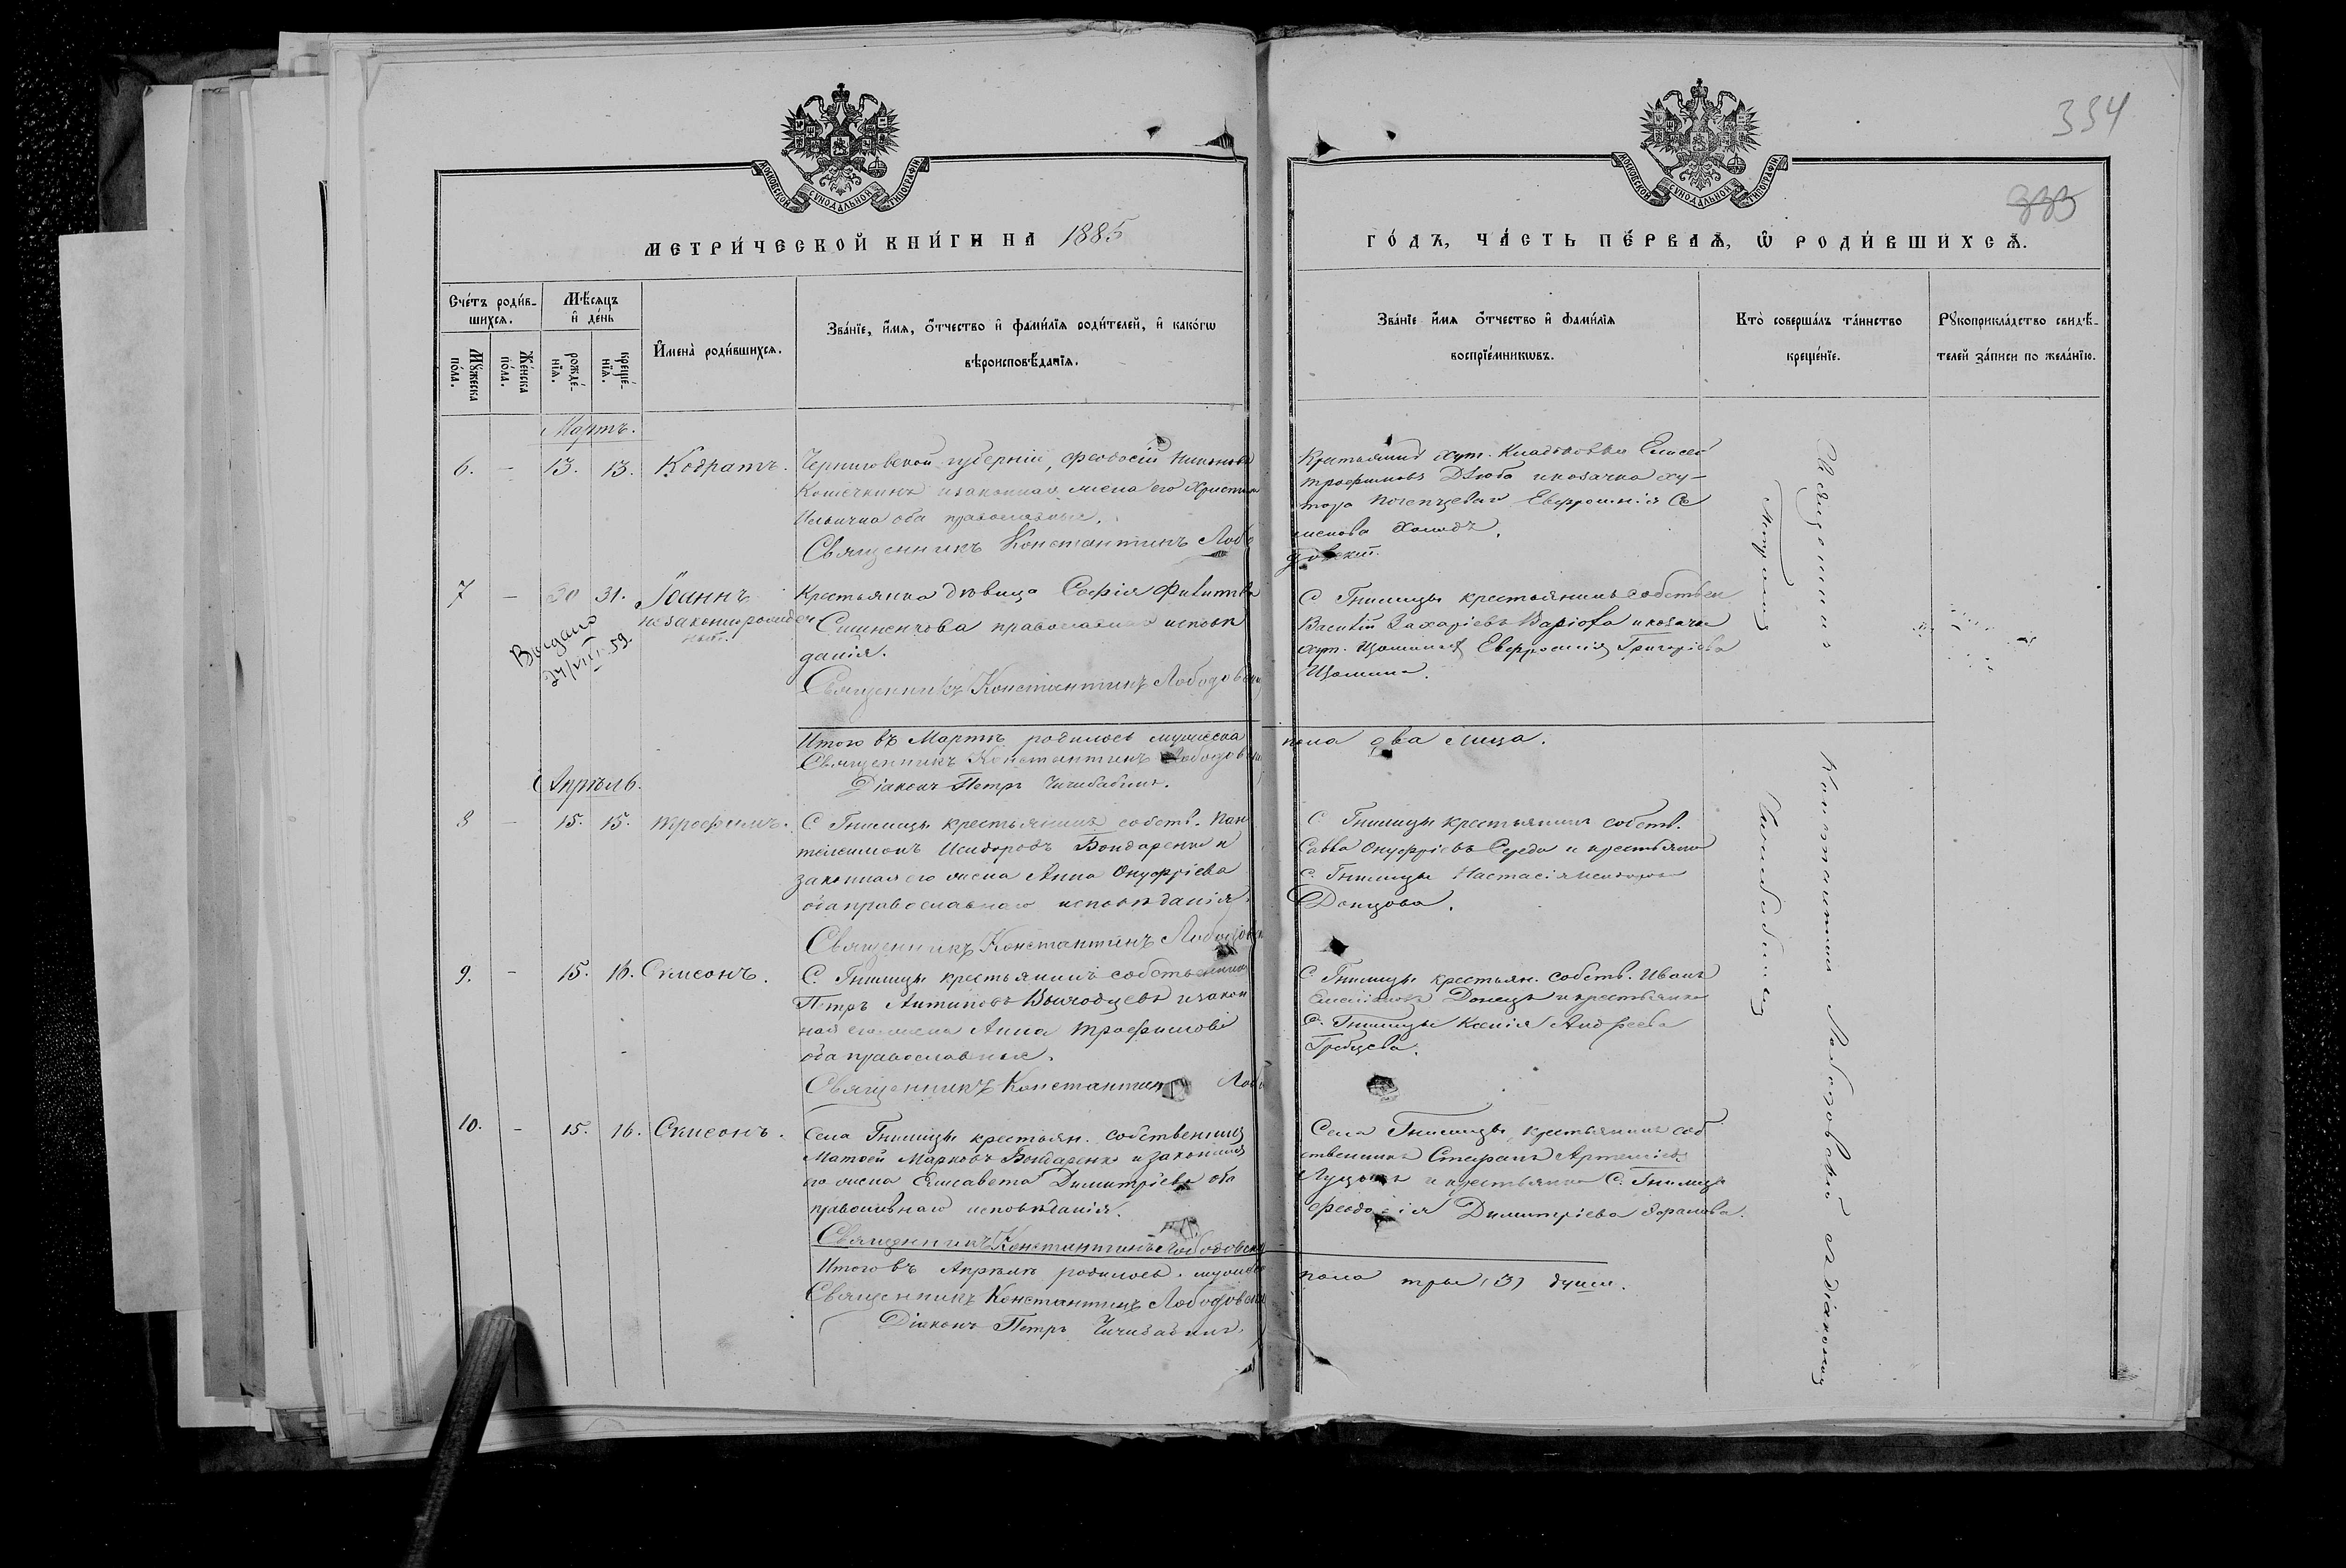 334
333
МОСКОВСКОЙ СУНОДАЛЬНОЙ ТИПОГРАФІИ
МОСКОВСКОЙ СУНОДАЛЬНОЙ ТИПОГРАФІИ
МЕТРИ́ЧЕСКОЙ КНИ́ГИ НА 1885
ГО́ДЪ, ЧА́СТЬ ПЕ́РВАѦ, Ѡ РОДИ́ВШИХСѦ.
Сче́тъ роди́в-
шихсѧ.
Мѣ́сѧцъ
и де́нь
Мꙋ́жеска
по́ла.
Же́нска
по́ла.
рожде́-
нїѧ.
креще́-
нїѧ.
Имена̀ роди́вшихсѧ.
Зва́нїе, и́мѧ, ѻ́тчество и фами́лїѧ роди́телей, и како́гѡ
вѣроисповѣ́данїѧ.
Зва́нїе и́мѧ ѻ́тчество и фами́лїѧ
воспрїе́мникѡвъ.
Кто̀ соверша́лъ та́инство
креще́нїе.
Рꙋкоприкла́дство свидѣ́-
телей за́писи по жела́нїю.
Мартъ.
6. - 13. 13. Кодратъ.
Черниговской губерніи, Феодосій
и законная жена его
Ильична оба православные.
Священникъ Константинъ Лобо
Крестьянинъ хут. Елисей
Трофимовъ Дзюба и козачка ху-
тора Евфросинія Се
менова
довскій.
7 - 30 31. Іоаннъ
незаконнорожден
ный.
Выдано
24/VIII 59.
Крестьянка дѣвица Софія
православнаго исповѣ
данія.
Священникъ Константинъ Лободовскій
С Гнилицы крестьянинъ собствен
Василій Захаріевъ и козачка
хут. Евфросинія Григоріева
Итого въ Мартѣ родилось мужеска
пола два лица.
Священникъ Константинъ Лободовскій
Діаконъ Петръ Чичибабинъ.
Апрѣль.
8 - 15. 15. Трофимъ.
С Гнилицы крестьянинъ собств. Пан
телеимонъ Исидоровъ Бондаренко и
законная его жена Анна Онуфріева
оба православнаго исповѣданія.
Священникъ Константинъ Лободовск
С. Гнилицы крестьянинъ собств.
Савва Онуфріевъ Середа и крестьянка
С. Гнилицы Настасія
Донцова.
9. - 15. 16. Симеонъ.
С. Гнилицы крестьянинъ собственник
Петръ Антиповъ и закон
ная его жена Анна Трофимова
оба православные.
Священникъ Константинъ Лобо
С. Гнилицы крестьян. собств. Иванъ
Донецъ и крестьянка
С. Гнилицы Ксенія Андреева
10. - 15. 16. Симеонъ.
Села Гнилицы крестьян. собственникъ
Матвей Марковъ Бондаренко и законная
его жена Елисавета Димитріева оба
православнаго исповѣданія.
Священникъ Константинъ Лободовскі
Села Гнилицы крестьянинъ соб
ственникъ Стефанъ Артемиевъ
и крестьянка С. Гнилицы
Феодосія Димитріева
Итого въ Апрѣлѣ родилось мужеск
пола три (3) души.
Священникъ Константинъ Лободовскі
Діаконъ Петръ Чичибабинъ.
Священникъ Константинъ Лободовскій съ діакономъ
Петромъ Чичибабинымъ